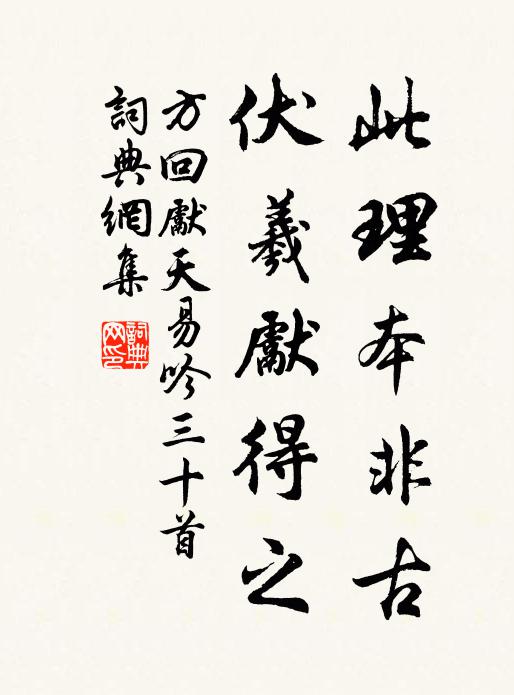 此理本非古
伏羲獻得之
方回獻天易吟三十首
詞典網集
詞典网印